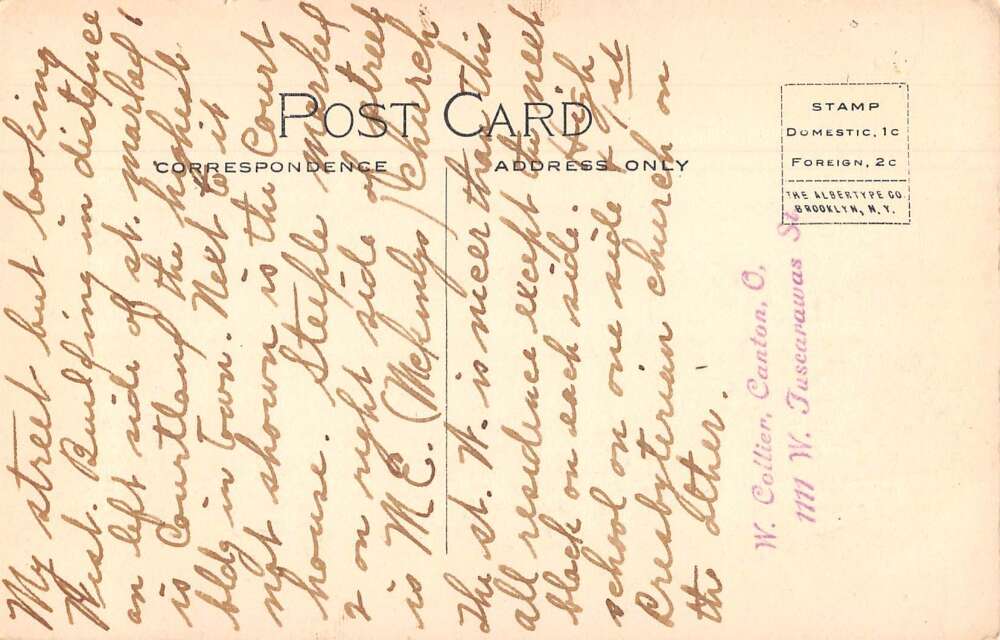 POST CARD
CORRESPONDENCE
ADDRESS ONLY
STAMP
DOMESTIC, 1C
FOREIGN, 2C
THE ALBERTYPE CO.
BROOKLYN, N.Y.
My street but looking
West. Building in distance
on left side of st. marked 1
is Courtland the highest
bldg in Town. Next to it
not shown is the Court
house. Steeple marked
2 on right side of street
is M.E. (McKinlys) Church
The st. W. is nicer than this
all residence except the next
block on each side. High
school on one side & 1st
Presbyterian church on
the other.
W. Collier, Canton, O.
1111 W. Tuscarawas St